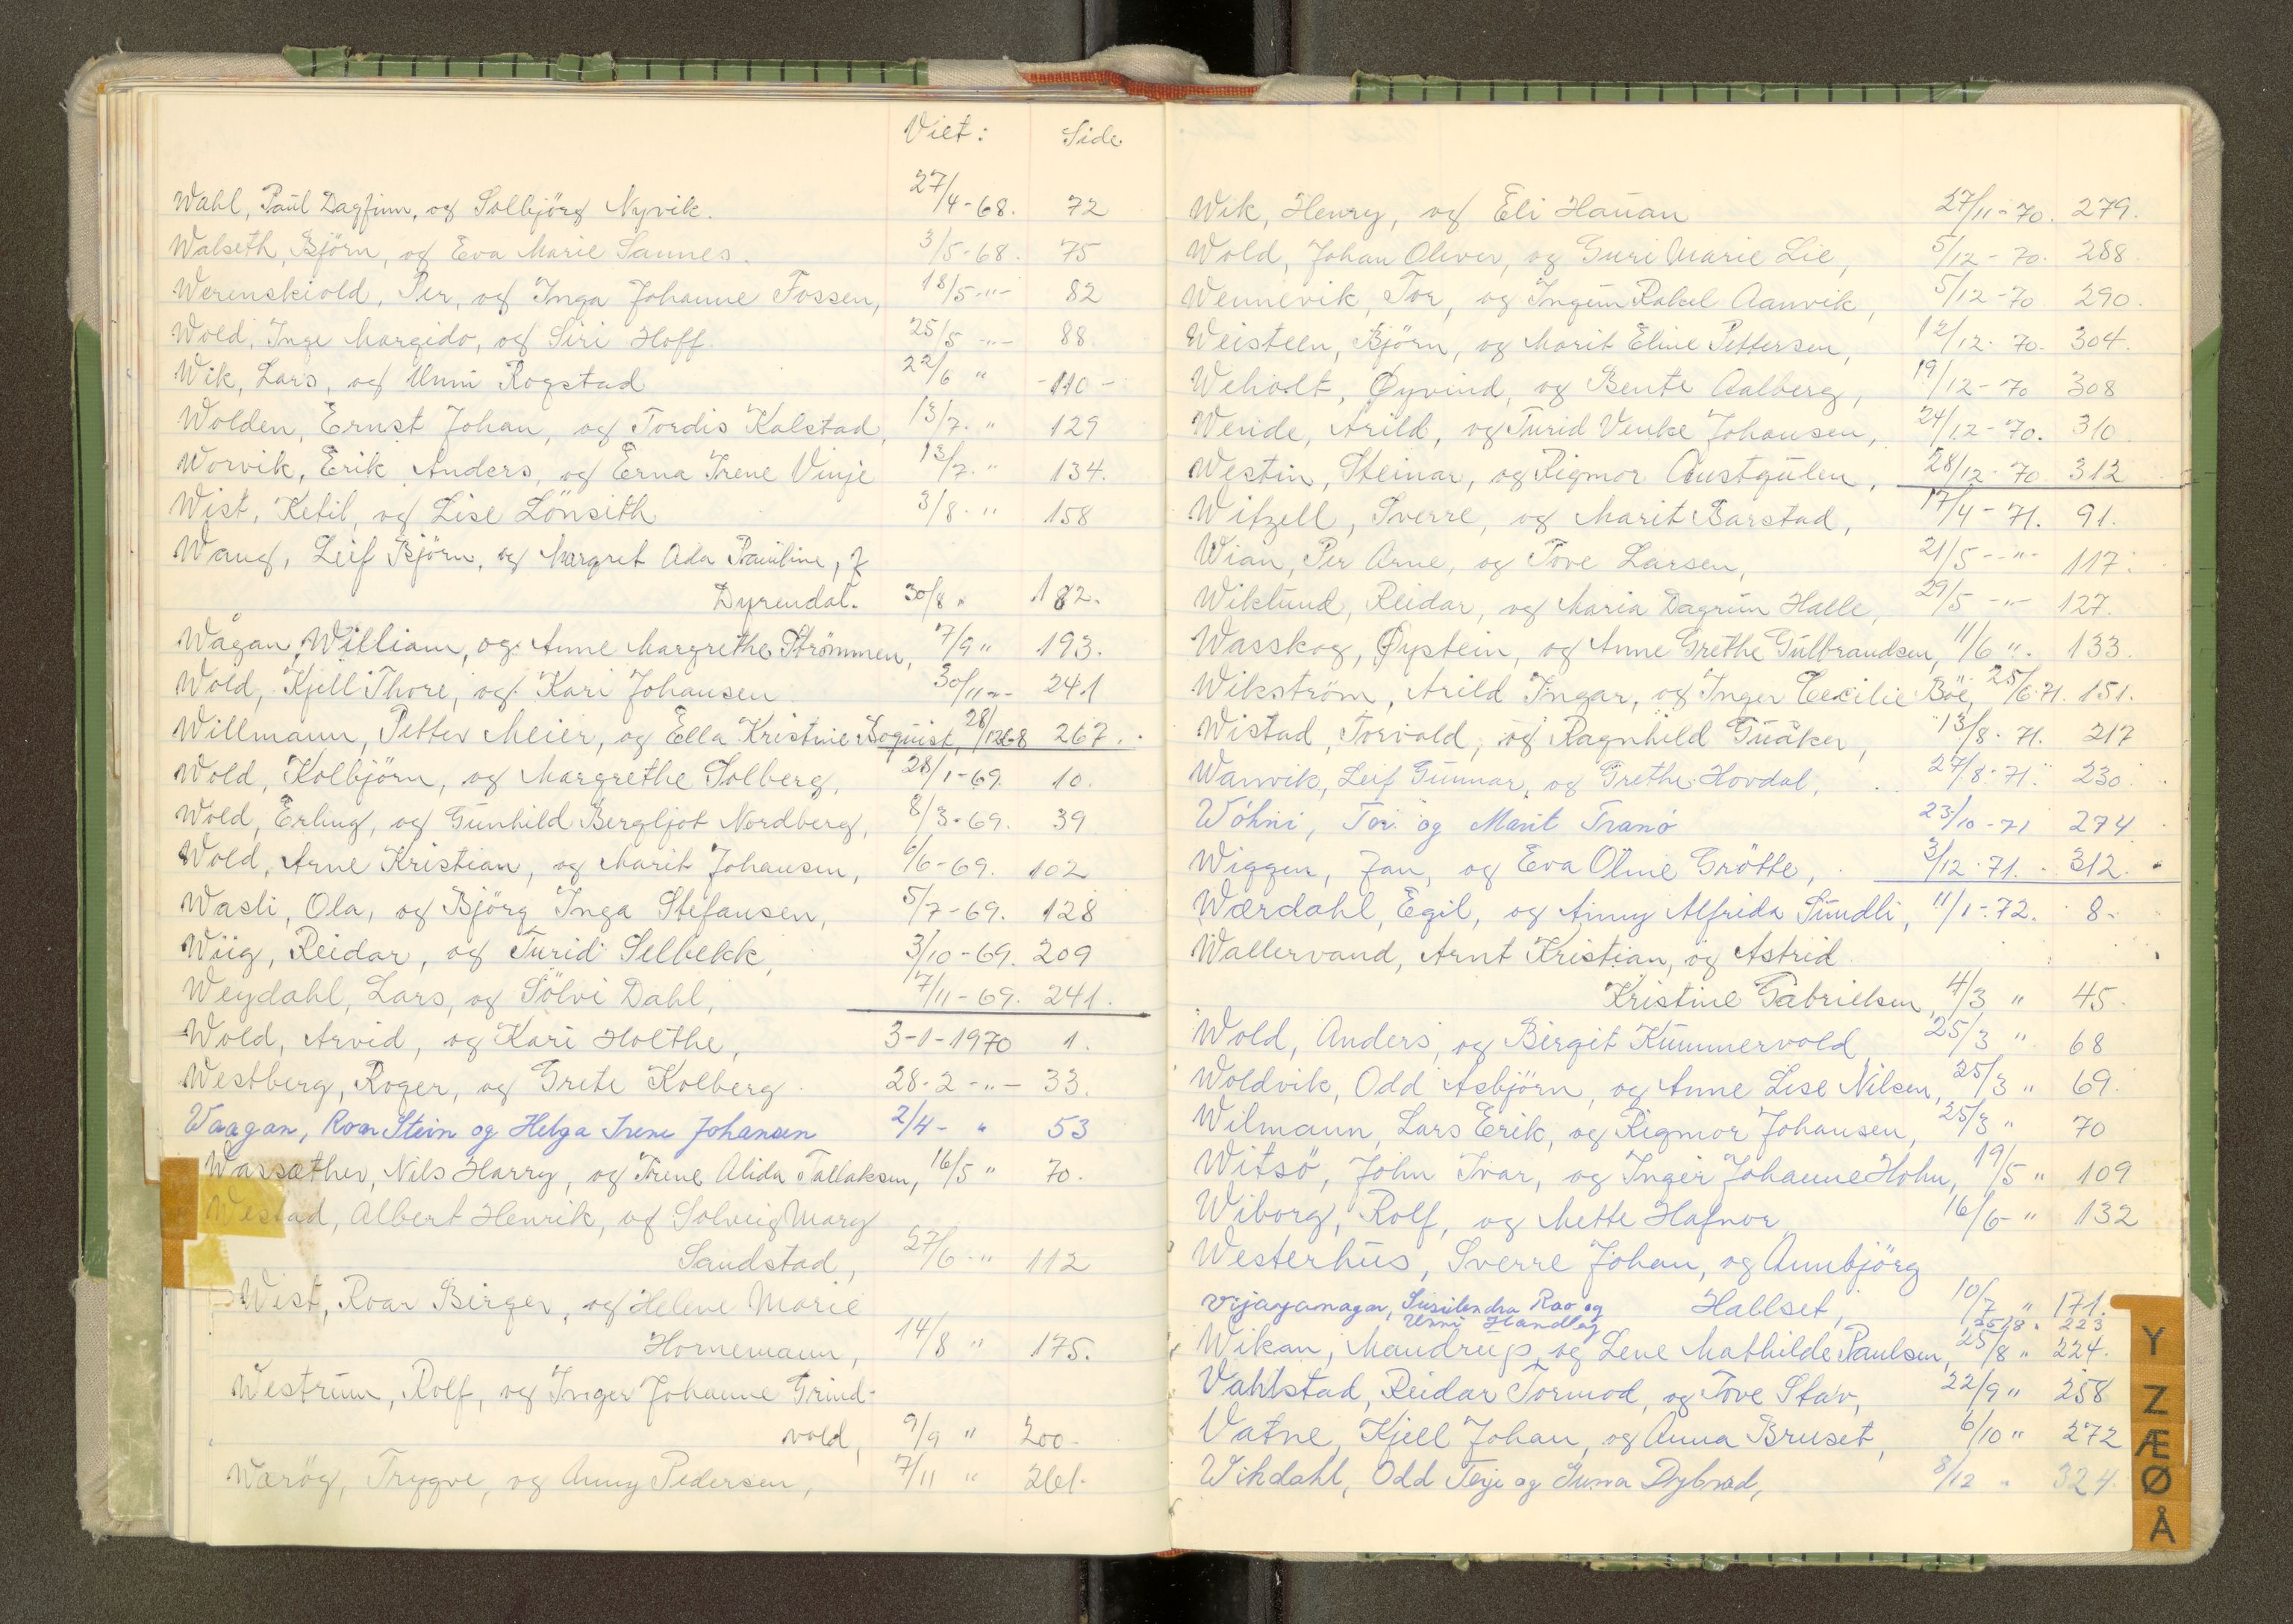 Viet: Side
Wahl, Paul Dagfinn, og Solbjörg Nyvik. 27/4-68. 72
Walseth, Björn, og Eva Marie Saunes. 3/5-68. 75
Werenskiold, Per, og Inga Johanne Fossen, 18/5-"- 82
Wold, Inge Margido, og Siri Hoff. 25/5 -"- 88.
Wik, Lars, og Unni Rogstad 22/6 " -110-
Wolden, Ernst Johan, og Tordis Kalstad, 13/7. " 129
Worvik, Erik Anders, og Erna Irene Vinje 13/7. " 134.
Wist, Ketil, og Lise Lönseth 3/8. " 158
Wang, Leif Björn, og Margret Ada Pauline, f
Dyrendal. 30/8 " 182.
Wågan, William, og Anne Margrethe Strömmen, 7/9 " 193.
Wold, Kjell Thore, og Kari Johansen 30/11 -"- 241
Willmann, Petter Meier, og Ella Kristine Soquist, 28/12 68 267.
Wold, Kolbjörn, og Margrethe Solberg, 28/1-69. 10.
Wold, Erling, og Gunhild Bergljot Nordberg, 8/3-69. 39
Wold, Arne Kristian, og Marit Johansen, 6/6-69. 102
Wasli, Ola, og Björg Inga Stefansen, 5/7-69. 128
Wiig, Reidar, og Turid Selbekk, 3/10-69. 209
Weydahl, Lars, og Sölvi Dahl, 17/11-69. 241.
Wold, Arvid, og Kari Holthe, 3-1-1970 1.
Westberg, Roger, og Grete Kolberg 28-2 -"- 33.
Waagan, Roar Stein og Helga Irene Johansen 2/4- " 53
Wassæther, Nils Harry, og Irene Alida Tallaksen, 16/5 " 70.
Westad, Albert Henrik, og Solveig Mary
Sandstad, 27/6 -" 112
Wist, Roar Birger, og Helene Marie
Hornemann, 14/8 " 175.
Westrum, Rolf, og Inger Johanne Grind-
vold, 9/9 " 200.
Wærög, Trygve, og Anny Pedersen, 7/11 " 261.
Wik, Henry, og Eli Hauan 27/11-70. 279.
Wold, Johan Oliver, og Guri Marie Lie, 5/12-70. 288
Wennevik, Tor, og Ingunn Rakel Aanvik, 5/12-70 290.
Weisteen, Björn, og Marit Eline Pettersen, 12/12-70. 304.
Weholt, Øyvind, og Bente Aalberg, 19/12-70 308
Wende, Arild, og Turid Venke Johansen, 24/12-70. 310
Westin, Steinar, og Rigmor Austgulen, 28/12-70 312
Witzell, Sverre, og Marit Barstad, 17/4-71. 91.
Wian, Per Arne, og Tove Larsen, 21/5 --"- 117.
Wiklund, Reidar, og Maria Dagrun Halle, 29/5 -"- 127.
Wasskog, Øystein, og Anne Grethe Gulbrandsen, 11/6 ". 133.
Wikström, Arild Ingar, og Inger Cecilie Böe, 25/6-71. 151.
Wistad, Torvald, og Ragnhild Guåker, 13/8-71. 217
Wanvik, Leif Gunnar, og Grethe Hovdal, 27/8-71. 230
Wöhni, Tor og Marit Tranö 23/10-71 274
Wiggen, Jan, og Eva Oline Grötte, 3/12-71. 312.
Wærdahl, Egil, og Anny Alfrida Sundli, 11/1-72. 8-
Wallervand, Arnt Kristian, og Astrid
Kristine Gabrielsen, 4/3 " 45.
Wold, Anders, og Birgit Kummervold 25/3 " 68
Woldvik, Odd Asbjörn, og Anne Lise Nilsen, 25/3 " 69.
Wilmann, Lars Erik, og Rigmor Johansen, 25/3 " 70
Witsö, John Ivar, og Inger Johanne Hohn, 19/5 " 109
Wiborg, Rolf, og Mette Hafnor 16/6- " 132
Westerhus, Sverre Johan, og Annbjörg
Hallset, 10/7 " 171.
Vijayanagar, Susilendra Rao og
Unni Handløy 25/8 " 223
Wikan, Maudrup, og Lene Mathilde Paulsen, 25/8 " 224.
Vahlstad, Reidar Tormod, og Tove Stav, 22/9 " 258
Vatne, Kjell Johan, og Anna Bruset, 6/10 " 272
Wikdahl, Odd Terje og Gunna Dybvad, 8/12 " 324
Y
Z
Æ
Ø
Å